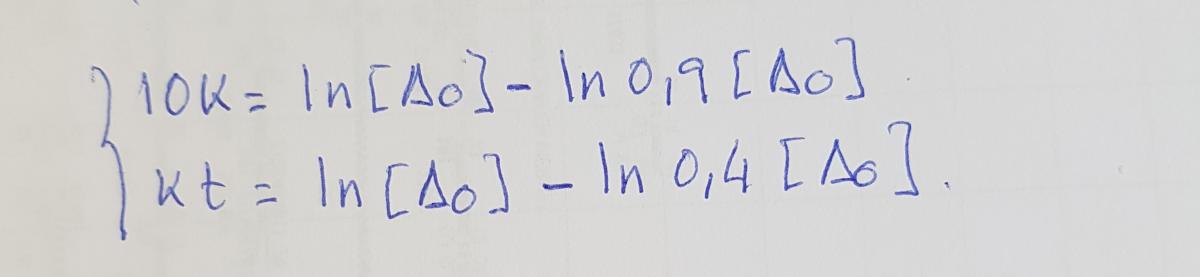 10k = ln[A0] - ln 0,9 [A0]
kt = ln[A0] - ln 0,4 [A0].